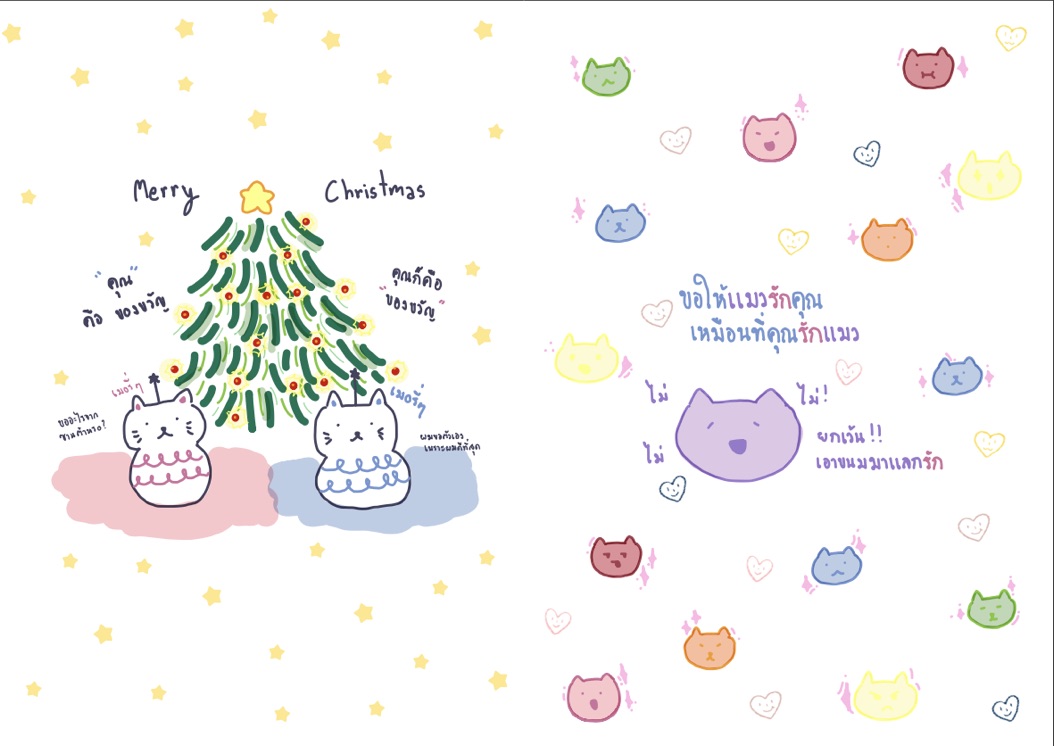 Merry Christmas
"คุณ"
คือ ของขวัญ
คุณก็คือ
"ของขวัญ"
เมอรี่ๆ
เมอรี่ๆ
ขออะไรจาก
ซานต้าหรอ?
ผมขอตัวเอง
เพราะผมดีที่สุด
ขอให้แมวรักคุณ
เหมือนที่คุณรักแมว
ไม่
ไม่!
ไม่
ยกเว้น!!
เอาขนมมาแลกรัก